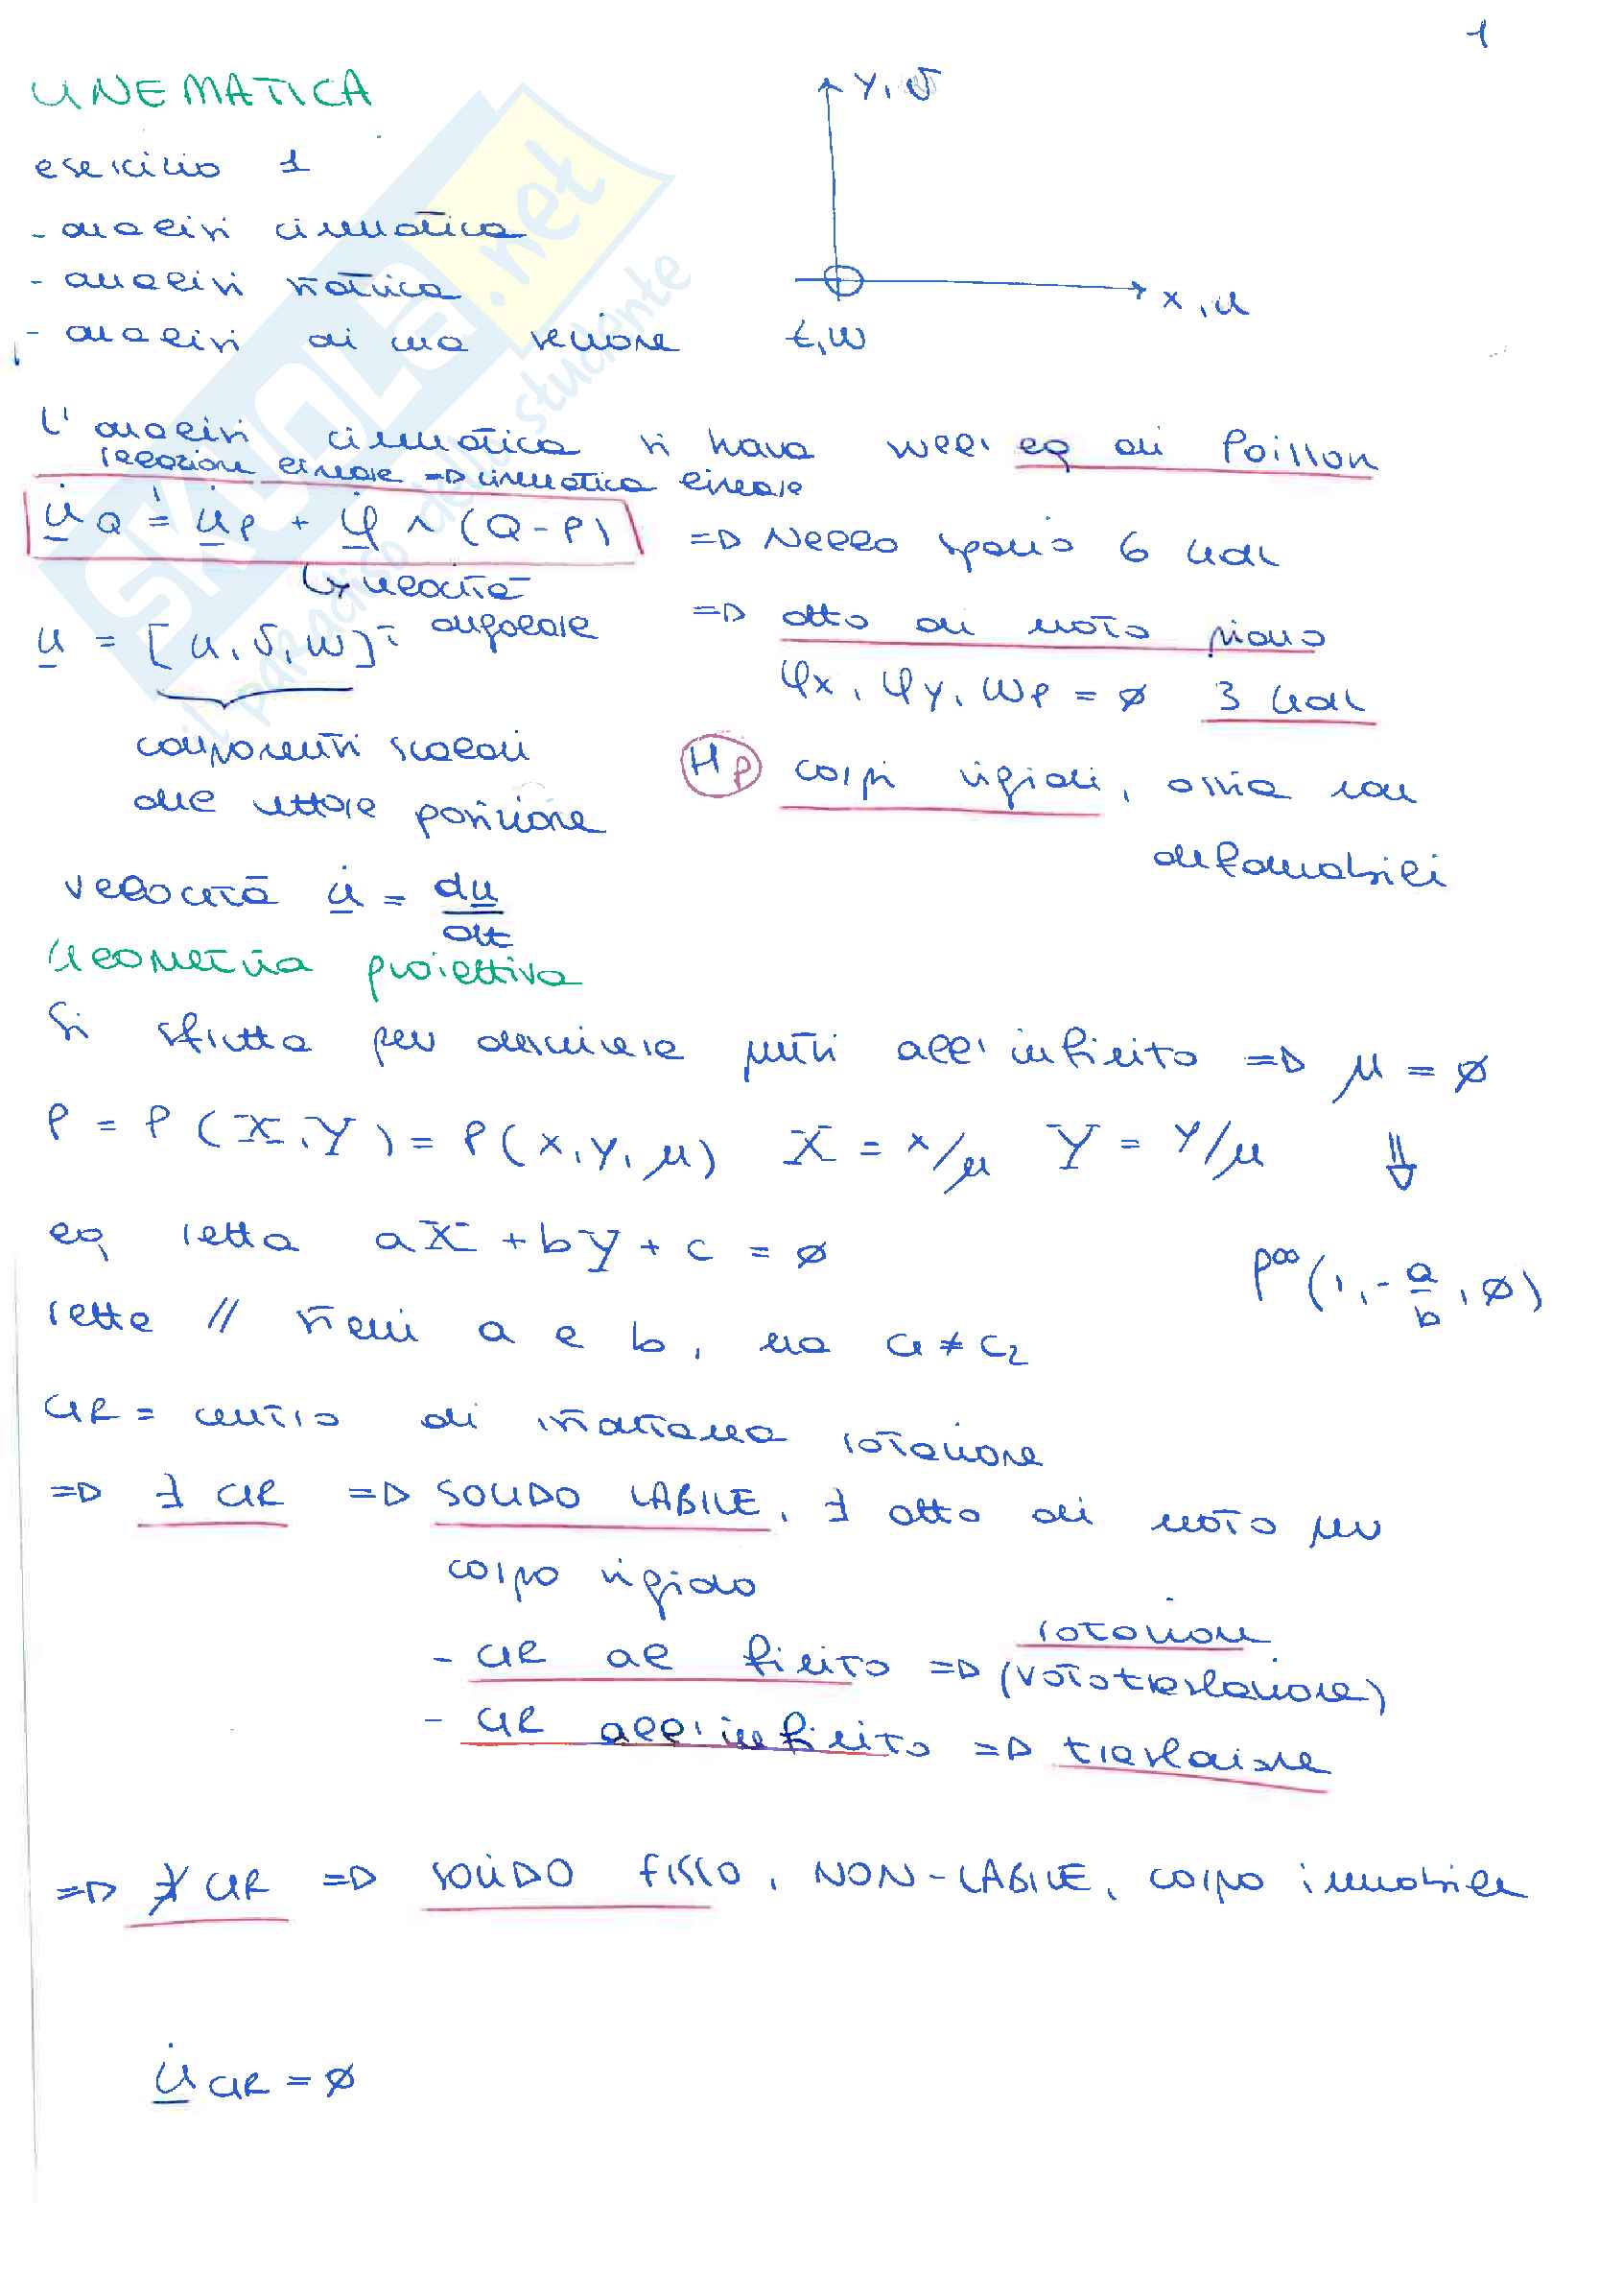 1
CINEMATICA
esercizio 1
- analisi cinematica
- analisi statica
- analisi di una sezione
y, v
x, u
z, w
L'analisi cinematica si trova nell'eq di Poisson
relazione lineare => cinematica lineare
u̇_Q = u̇_P + φ̇ ∧ (Q-P) => Nello spazio 6 GdL
↳ velocità angolare
=> atto di moto piano
u = [u, v, w]ᵀ
φx, φy, wp = ∅ 3 GdL
componenti scalari
del vettore posizione
Hp corpi rigidi, ossia non
deformabili
velocità u̇ = du/dt
Geometria proiettiva
Si sfrutta per descrivere punti all'infinito => μ = ∅
P = P(X,Y) = P(x, y, μ) X = x/μ Y = y/μ ⇓
eq retta aX + bY + c = ∅
P∞(1, -a/b, ∅)
rette // stessi a e b, ma c1 ≠ c2
CIR = centro di istantanea rotazione
=> ∃ CIR => SOLIDO LABILE, ∃ atto di moto per
corpo rigido
- CIR al finito => rotazione
(rototraslazione)
- CIR all'infinito => traslazione
=> ∄ CIR => SOLIDO FISSO, NON-LABILE, corpo immobile
u̇ CIR = ∅
SKUOLA.net
il paradiso dello studente